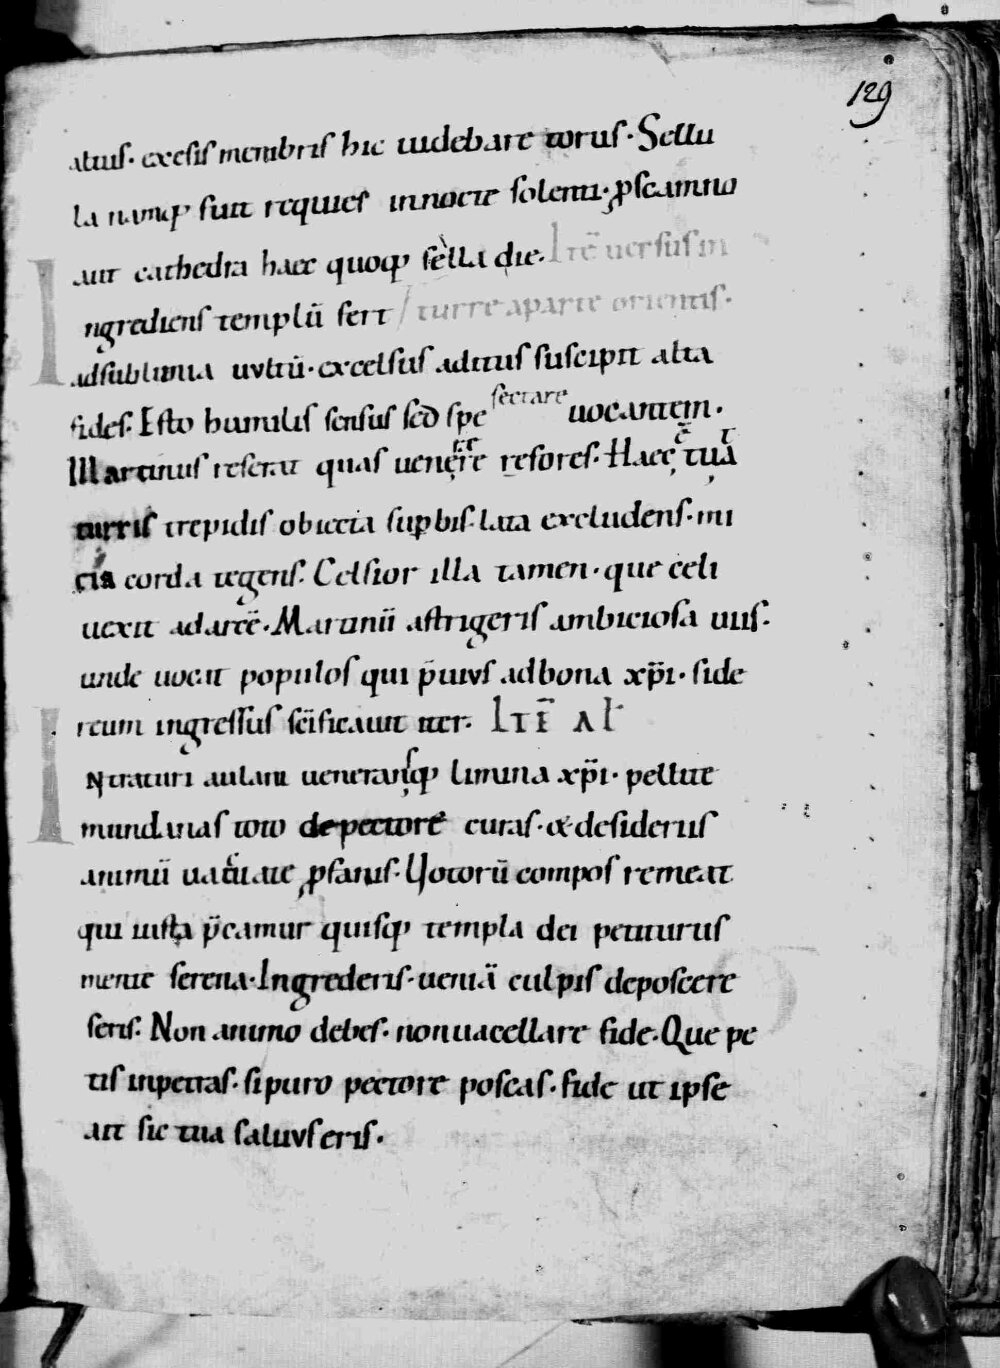 129
atuis. exesis membris hic uidebare torus. Sellu
la namq; fuit requies in nocte solenti. p̱ scamno
aut cathedra haec quoq; sella die. Itē uersus in
Ingrediens templū fert / turre a parte orientis.
ad sublimia uultū. excelsus aditus suscipit alta
fides. Esto humilis sensus sed spe sectare uocantem.
Martinus reserat quas uenerere fores. Haec ē tuta
turris trepidis obiecta sup̱bis. lata excludens. mi
cia corda tegens. Celsior illa tamen. que celi
uexit ad arcē. Martinū astrigeris ambiciosa uiis.
unde uocat populos qui p̄uius ad bona xp̄i. side
reum ingressus sc̄ificauit iter. ITĒ AL
Intraturi aulam ueneransq; limina xp̄i. pellite
mundanas toto de pectore curas. & desideriis
animū uacuate p̱fanis. Votorū compos remeat
qui iusta p̄camur quisq; templa dei petiturus
mente serena. Ingrederis. ueniā culpis deposcere
seris. Non animo debes. non uacellare fide. Que pe
tis inpetras. si puro pectore poscas. fide ut ipse
ait sic tua saluus eris.